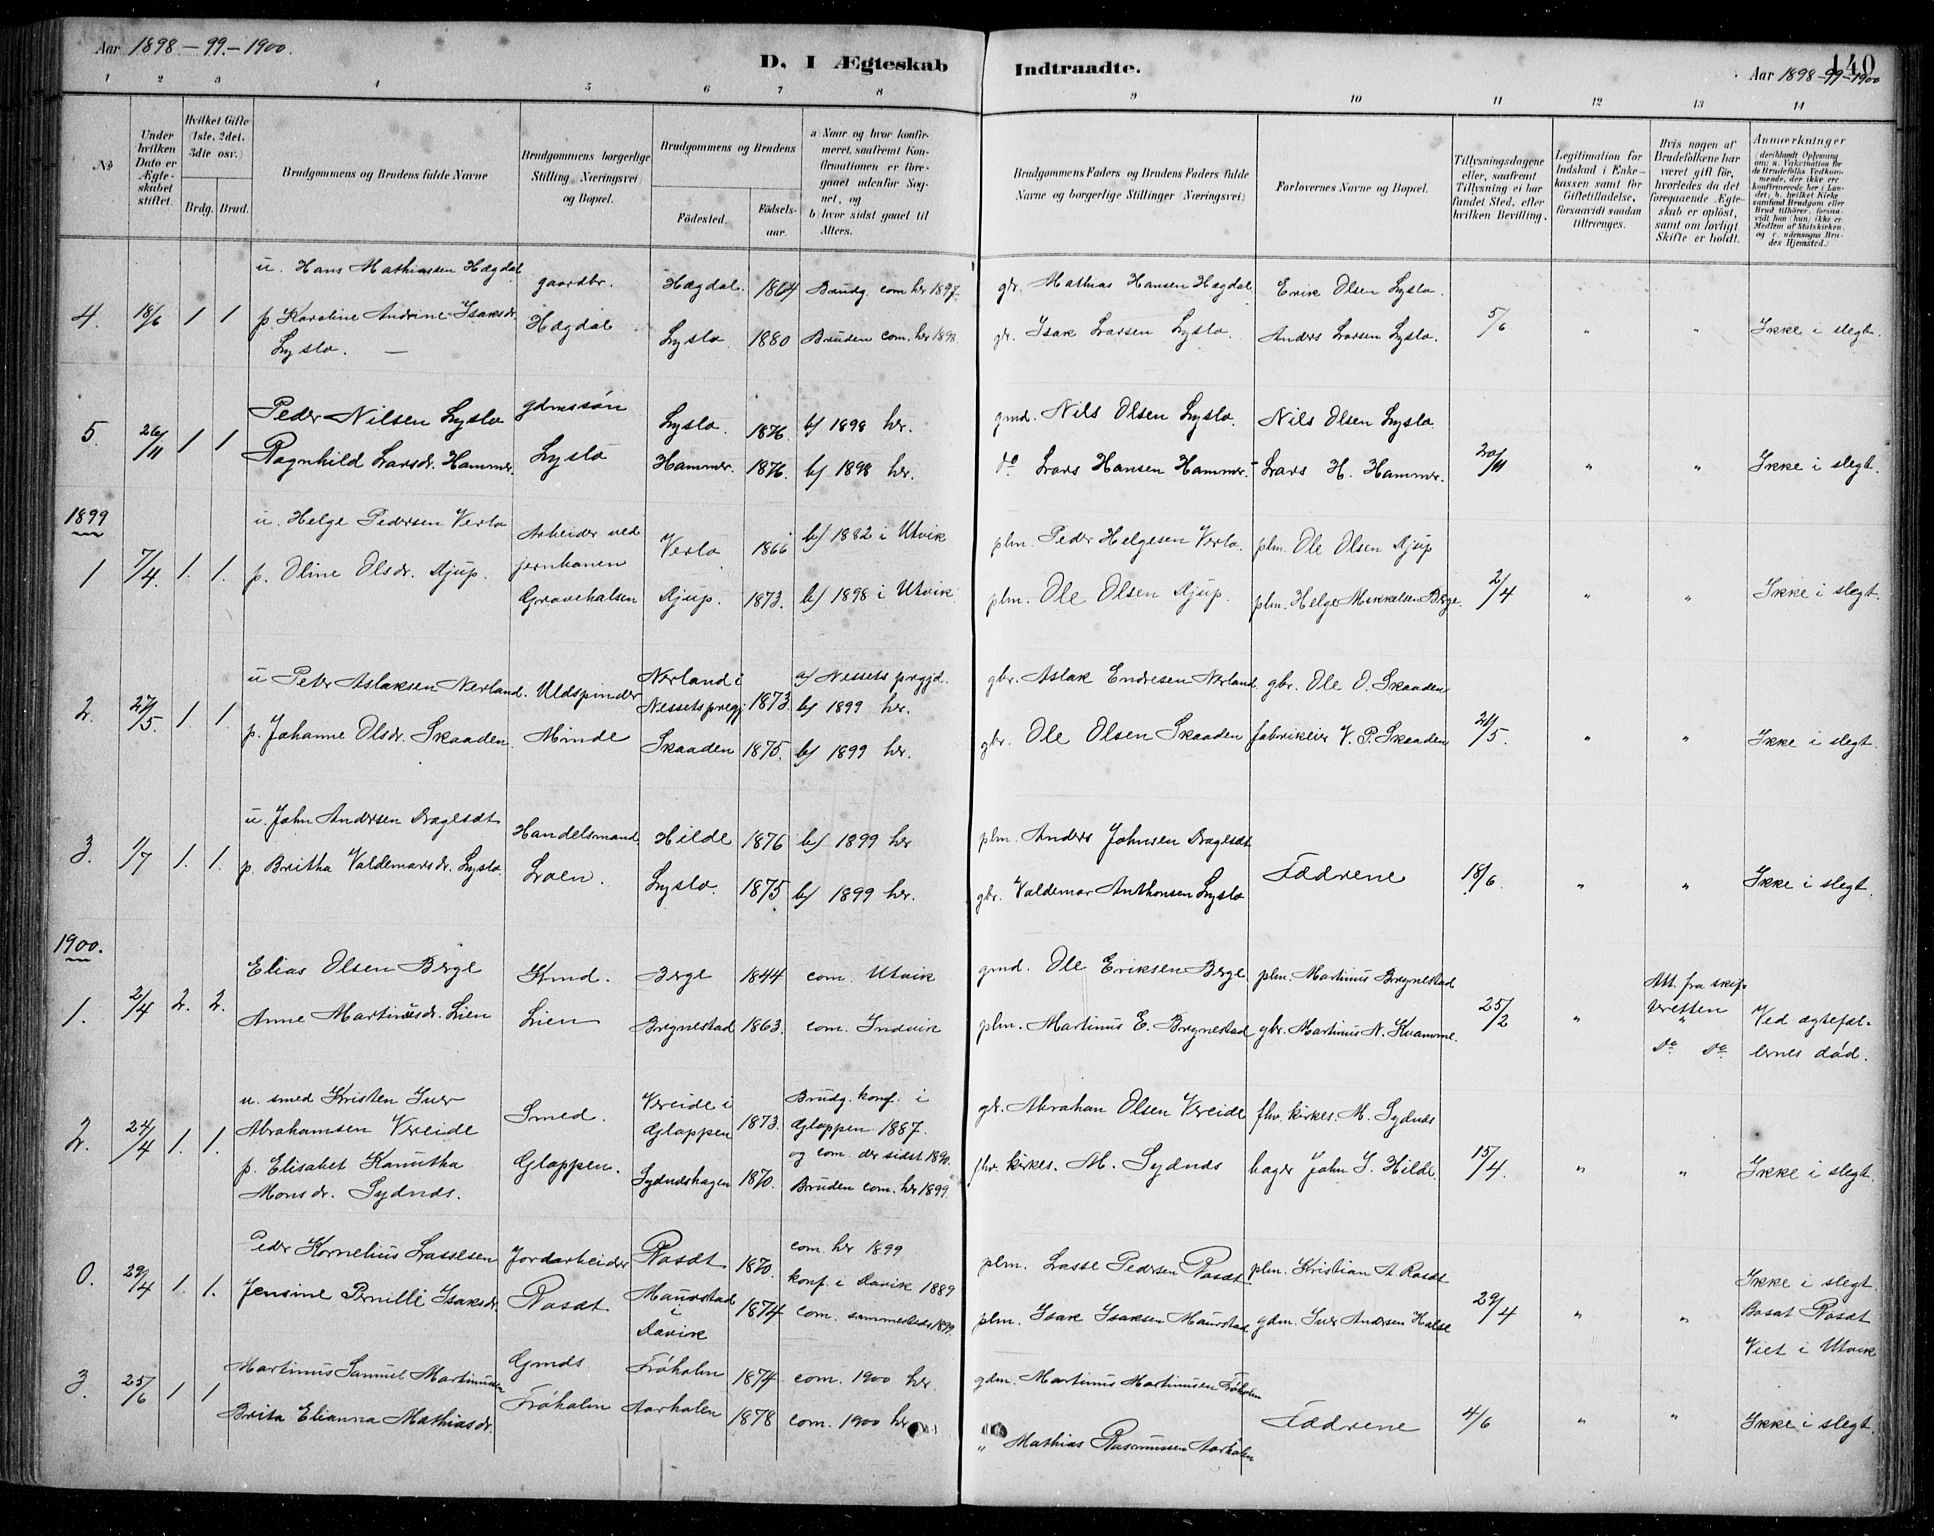 Aar 1898-99-1900.
D. I Ægteskab Indtraadte.
140
Aar 1898-99-1900
1 2 3 4 5 6 7 8 9 10 11 12 13 14
No
Under hvilken Dato er Ægteskabet stiftet.
Hvilket Gifte (1ste, 2det, 3die osv.)
Brdg. Brud.
Brudgommens og Brudens fulde Navne
Brudgommens borgerlige Stilling (Næringsvei) og Bopæl.
Brudgommens og Brudens
Fødested. Fødselsaar.
a) Naar og hvor konfirmeret, saafremt Konfirmationen er foregaaet udenfor Sognet, og
b) hvor sidst gaaet til Alters.
Brudgommens Faders og Brudens Faders fulde Navne og borgerlige Stillinger (Næringsvei)
Forlovernes Navne og Bopæl.
Tillysningsdagene eller, saafremt Tillysning ei har fundet Sted, efter hvilken Bevilling.
Legitimation for Indskud i Enkekassen samt for Giftetilladelse, forsaavidt saadan tiltrænges.
Hvis nogen af Brudefolkene har været gift før, hvorledes da det foregaaende Ægteskab er opløst, samt om lovligt Skifte er holdt.
Anmærkninger
(deriblandt Oplysning om: a. Vakcination for de Brudefolks Vedkommende, der ikke ere konfirmerede her i Landet; b. hvilket Kirkesamfund Brudgom eller Brud tilhører, forsaavidt han (hun) ikke er Medlem af Statskirken, og c. udensogns Brudes Hjemsted.)
4. 18/6 1 1 u. Hans Mathiassen Hægdal gaardbr. Hægdal. 1864 Brudg. com her 1897. gr. Mathias Hansen Hægdal Erik Olsen Lyslo.
p. Karoline Andrine Isaksdr. Hægdal Lyslo 1880 Bruden com. her 1898 gr. Isak Larsen Lyslo. Anders Larsen Lyslo. 5/6 " " Ikke i slegt.
Lyslo. —
5. 26/11 1 1 Peder Nilsen Lyslo gdmssøn Lyslo. 1876. b/ 1898 her. gmd. Nils Olsen Lyslo. Nils Olsen Lyslo.
Ragnhild Larsdr. Hammer. Lyslo Hammer. 1876. b/ 1898 her. do Lars Hansen Hammer. Lars H. Hammer. 20/11 " " Ikke i slegt.
1899
1 7/4 1. 1. u. Helge Pedersen Verlo Arbeider ved Verlo 1866 b/ 1882 i Utvik plm. Peder Helgesen Verlo. plm. Ole Olsen Djup
p. Oline Olsdr. Djup. jernbanen
Gravehalsen Djup. 1873. b/ 1898 i Utvik. plm. Ole Olsen Djup. plm. Helge Mikkelsen Berge. 2/4 " " Ikke i slegt.
2. 27/5. 1 1 u Peter Aslaksen Nerland. Uldspinder Nerland i Nessets prgj 1873. a/ Nessets prgjd. b/ 1899 her. gbr. Aslak Endresen Nerland gbr. Ole O. Skaaden
p. Johanne Olsdr. Skaaden Minde Skaaden 1875. b/ 1899 her. gbr. Ole Olsen Skaaden fabrikeier V. P. Skaaden 21/5. " " Ikke i slegt.
3. 1/7 1. 1. u. John Andersen Dragesæt Handelsmand Hilde 1876 b/ 1899 her plm. Anders Johnsen Dragesæt
p. Britha Valdemarsdr. Lyslo. Loen. Lyslo. 1875 b/ 1899 her. gbr. Valdemar Anthonsen Lyslo Fædrene 18/6. " " Ikke i slegt.
1900.
1. 2/4 2. 2. Elias Olsen Berge Kmd. Berge 1844 com. Utvik gmd. Ole Eriksen Berge plm. Martinus Brynestad
Anne Martinusdr. Lien Lien Brynestad 1863. com. Indvik plm. Martinus E. Brynestad gbr. Martinus N. Kvamme. 25/2 " Att. fra skifteretten " Ved ægtefællernes død.
do do
2. 24/4 1. 1. u. smed Kristen Iver Abrahamsen Vereide Smed. Vereide i Gloppen 1873. Brudg. konf. i Gloppen 1887. og com. der sidst 1890. gbr. Abrahan Olsen Vereide fhv. kirkes. M. Sydnes
p. Elisabet Kanutha Monsdr. Sydnes. Gloppen. Sydneshagen 1870. Bruden com. her 1899. fhv. kirkes. M. Sydnes bager John S. Hilde 15/4. " " Ikke i slegt.
0. 29/4 1. 1. Peder Kornelius Lassesen Jordarbeider Raset 1870. com. her 1899 plm. Lasse Pedersen Raset plm. Kristian A. Raset
Jensine Pernille Isaksdr. Raset Maurstad i Davik 1874 konf. i Davik 1889 com. sammesteds 1899. plm. Isak Isaksen Maurstad gdm. Iver Andersen Halse 29/4 " " Ikke i slegt. Bosat Raset Viet i Utvik
3. 25/6 1 1 Martinus Samuel Martinussen Gmds. Frøholm 1874 com. 1900 her. gdm. Martinus Martinusen Frøholm
Brita Elianna Mathiasdr. Frøholm Aarholen 1878 com. 1900 her " Mathias Rasmussen Aarholen Fædrene 4/6 " " Ikke i slegt.